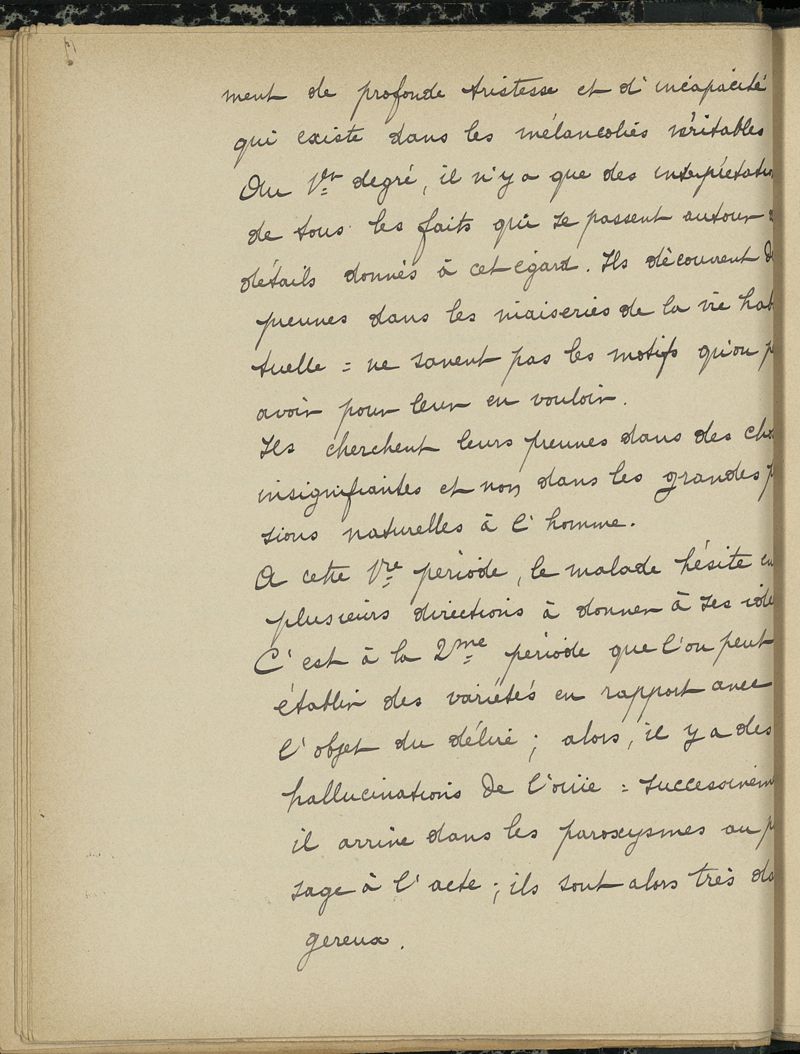 ment de profonde tristesse et d'incapacité
qui existe dans les mélancolies véritables
Au 1er degré, il n'y a que des interprétation
de tous les faits qui se passent autour
détails donnés à cet égard. Ils découvrent de
preuves dans les niaiseries de la vie habi
tuelle = ne savent pas les motifs qu'on p
avoir pour leur en vouloir.
Ils cherchent leurs preuves dans des cho
insignifiantes et non dans les grandes p
sions naturelles à l'homme.
A cette 1re période, le malade hésite en
plusieurs directions à donner à ses idé
C'est à la 2me période que l'on peut
établir des variétés en rapport avec
l'objet du délire ; alors, il y a des
hallucinations de l'ouïe = successivem
il arrive dans les paroxysmes au p
sage à l'acte ; ils sont alors très da
gereux.